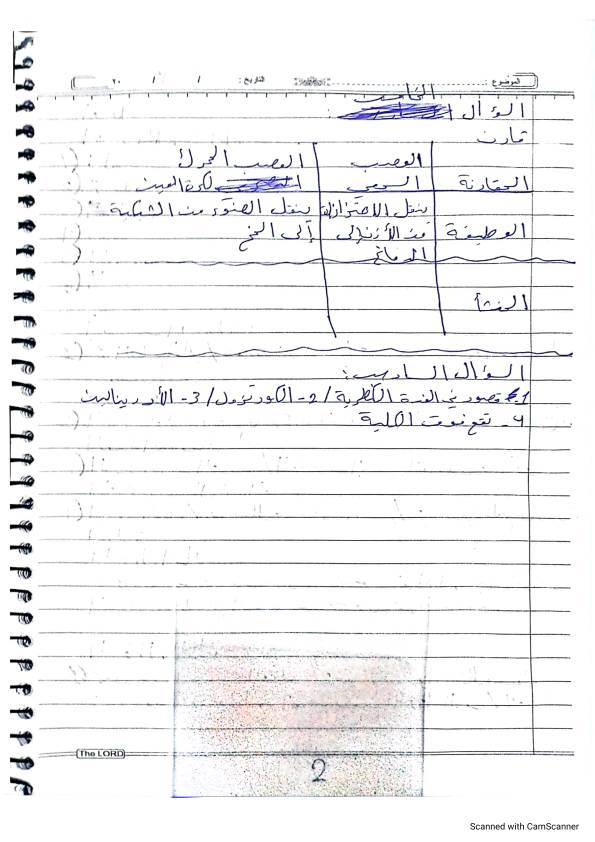 الموضوع : التاريخ : / / ٢٠
الخامس
السؤال
قارن
المقارنة العصب السمعي العصب المحرك لكرة العين
الوظيفة ينقل الاهتزازات من الأذن إلى الدماغ ينقل الضوء من الشبكية إلى المخ
المنشأ
السؤال السادس:
1- قصور في الغدة الكظرية / 2- الكورتزول / 3- الأدرينالين
4- تقع فوق الكلية
The LORD
2
Scanned with CamScanner